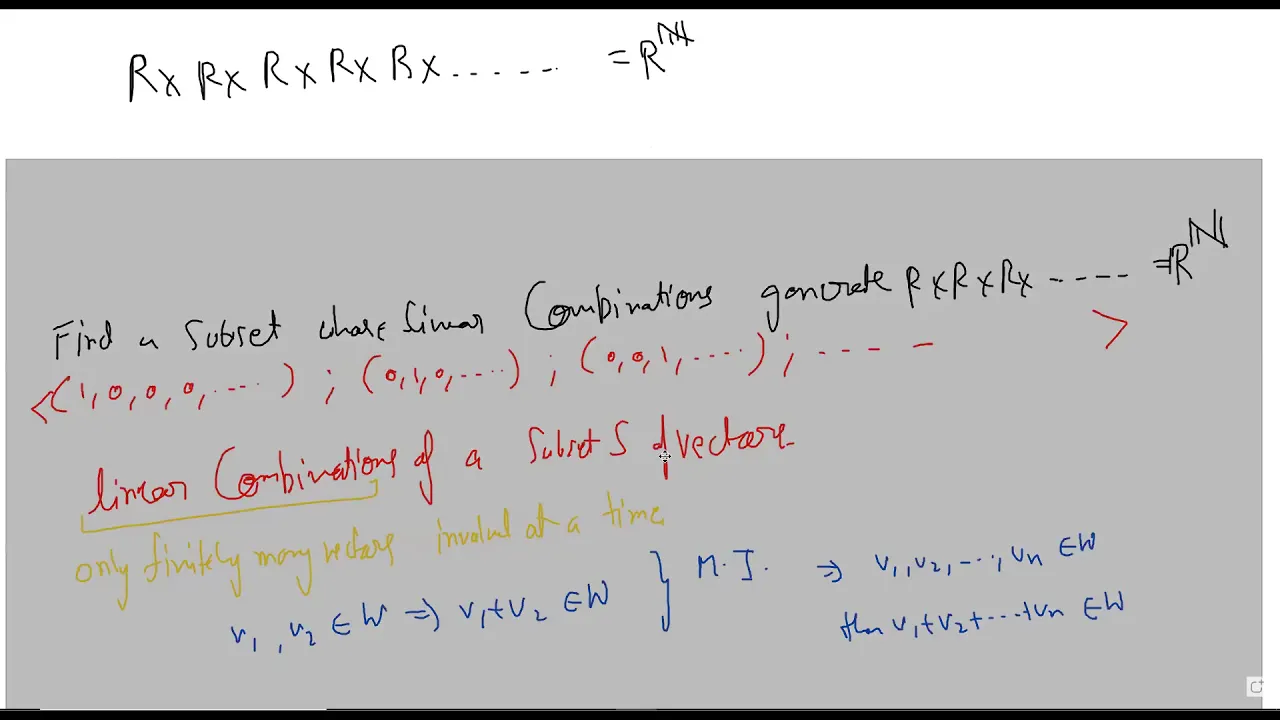 R x R x R x R x R x ...... = R^ℕ
Find a subset whose linear Combinations generate R x R x R x ---- = R^ℕ
<(1,0,0,0,.....) ; (0,1,0,.....) ; (0,0,1,.....) ; ---- >
linear Combinations of a subset S of vectors
only finitely many vectors involved at a time
v₁, v₂ ∈ W ⇒ v₁+v₂ ∈ W } M.I. ⇒ v₁, v₂, ..., vₙ ∈ W
then v₁+v₂+...+vₙ ∈ W